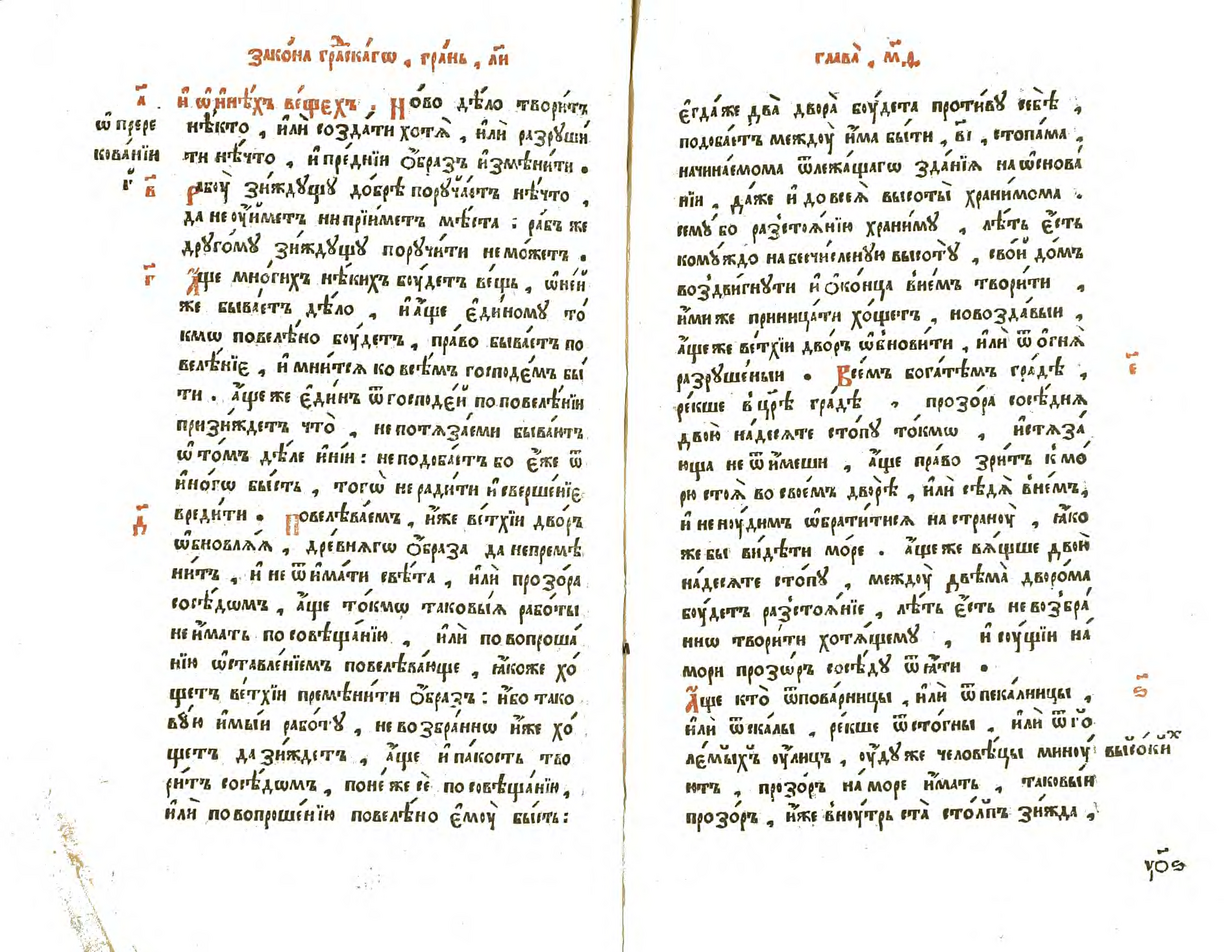 Зако́на гра́дскагѡ , гра́нь , л҃и
а҃
ѡ҆ прере
кова́нїи
г҃
в҃
г҃
д҃
и҆ ѡ҆ и҆нѣ́хъ ве́щехъ , Но́во дѣ́ло твори́тъ
нѣ́кто , и҆лѝ созда́ти хотѧ̀ , и҆лѝ разруши́
ти нѣ́что , и҆ пре́днїи ѻ҆́бразъ и҆змѣни́ти .
Рабꙋ̀ зи́ждꙋщꙋ до́брѣ порꙋча́етъ нѣ́что ,
да не ᲂу҆́иметъ ни прїи́метъ мѣ́ста : ра́бъ же
дрꙋго́мꙋ зи́ждꙋщꙋ порꙋчи́ти не мо́жетъ .
А҆́ще мно́гихъ нѣ́кихъ бꙋ́детъ ве́щь , ѡ҆ не́и
же быва́етъ дѣ́ло , и҆ а҆́ще є҆ди́номꙋ то́
кмѡ повелѣ́но бꙋ́детъ , пра́во быва́етъ по
велѣ́нїе , и҆ мни́тсѧ ко всѣ́мъ господе́мъ бы́
ти . а҆́ще же є҆ди́нъ ѿ господе́й по повелѣ́нїи
призи́ждетъ что̀ , не потѧза́еми быва́ютъ
ѡ҆ то́мъ дѣ́ле и҆нїи : не подоба́етъ бо є҆́же ѿ
и҆но́гѡ бы́сть , тогѡ̀ не ради́ти и҆ сверше́нїе
вреди́ти . Повелѣва́емъ , и҆́же ве́тхїи дво́ръ
ѡ҆бновлѧ́ѧ , дре́внѧгѡ ѻ҆́браза да не премѣ́
ни́тъ , и҆ не ѿи҆ма́ти свѣ́та , и҆лѝ прозо́ра
сосѣ́дѡмъ , а҆́ще то́кмѡ таковы́ѧ рабо́ты
не и҆́мать по совѣща́нїю , и҆лѝ по вопроша́
нїю ѡ҆ставле́нїемъ повелѣва́юще , ꙗ҆́коже хо́
щетъ ве́тхїи премѣни́ти ѻ҆́бразъ : и҆́бо тако
вꙋ́ю и҆мы́и рабо́тꙋ , не возбра́ннѡ и҆́же хо́
щетъ да зи́ждетъ , а҆́ще и҆ па́кость тво
ри́тъ сосѣ́дѡмъ , поне́же сѐ по совѣща́нїи ,
и҆лѝ по вопроше́нїю повелѣ́но є҆мꙋ̀ бы́сть :
глава̀ , м҃ѳ.
є҆гда́ же два̀ двора̀ бꙋ́дета проти́вꙋ себѣ̀ ,
подоба́етъ междꙋ̀ и҆́ма бы́ти , в҃і , стопа́ма ,
начина́емома ѿлежа́щагѡ зда́нїѧ на ѡ҆снова́
нїи , да́же и҆ до всеѧ̀ высоты̀ храни́мома .
семꙋ́ бо разстоѧ́нїю храни́мꙋ , лѣ́ть є҆́сть
комꙋ́ждо на бесчи́сленꙋю высотꙋ̀ , сво́й до́мъ
воздви́гнꙋти и҆ ѻ҆ко́нца в не́мъ твори́ти ,
и҆́ми же приница́ти хо́щетъ , новозда́выи ,
а҆́ще же ве́тхїи дво́ръ ѡ҆бнови́ти , и҆лѝ ѿ ѻ҆гнѧ̀
разрꙋше́ныи . Всемъ бога́тѣмъ гра́дѣ ,
ре́кше в цр҃ѣ гра́дѣ , прозо́ра сосѣ́днѧ
двою̀ на́десѧте стопꙋ̀ то́кмѡ , и҆стѧза́
юща не ѿи́меши , а҆́ще пра́во зри́тъ к мо́
рю стоѧ̀ во свое́мъ дворѣ̀ , и҆лѝ сѣдѧ̀ в не́мъ ,
и҆ не нꙋ́димъ ѡ҆брати́тисѧ на странꙋ̀ , ꙗ҆́ко
же бы ви́дѣти мо́ре . а҆́ще же вѧ́щше двою̀
на́десѧте стопꙋ̀ , междꙋ̀ двѣма̀ дворо́ма
бꙋ́детъ разстоѧ́нїе , лѣ́ть є҆́сть не возбра́
ннѡ твори́ти хотѧ́щемꙋ , и҆ сꙋ́щїи на́
мори прозѡ́ръ сосѣ́дꙋ ѿѧ́ти .
А҆́ще кто̀ ѿ пова́рницы , и҆лѝ ѿ пека́лницы ,
и҆лѝ ѿ скалы̀ , ре́кше ѿ стогны̀ , и҆лѝ ѿ го
ле́мыхъ ᲂу҆́лицъ , ᲂу҆́дꙋ же человѣ́цы минꙋ́
ютъ , прозо́ръ на́ море и҆́мать , таковы́и
прозо́ръ , и҆́же внꙋ́трь ста̀ сто́пъ зи́жда ,
є҃
ѕ҃
высо́кихъ